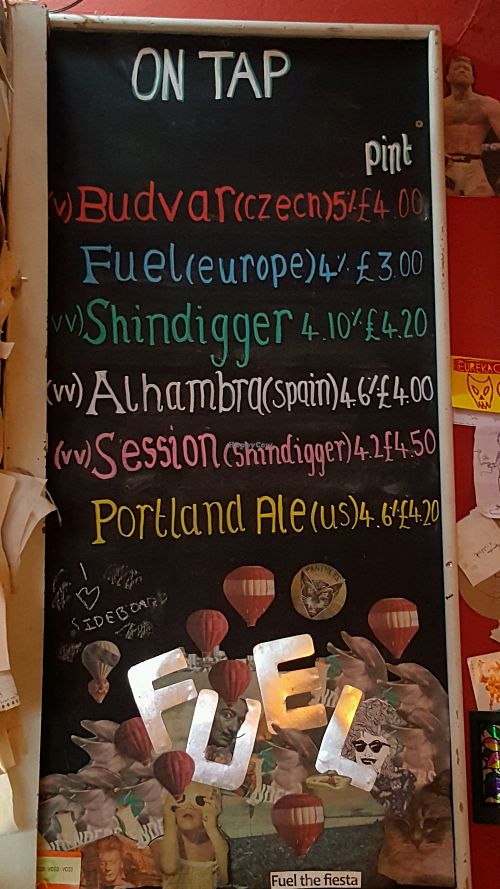 ON TAP
pint
(v) Budvar (czech) 5% £4.00
Fuel (europe) 4% £3.00
(vv) Shindigger 4.10% £4.20
(vv) Alhambra (spain) 4.6% £4.00
(vv) Session (shindigger) 4.2 £4.50
Portland Ale (us) 4.6% £4.20
EUREKA
I
SIDEBOARD
FUEL
Fuel the fiesta